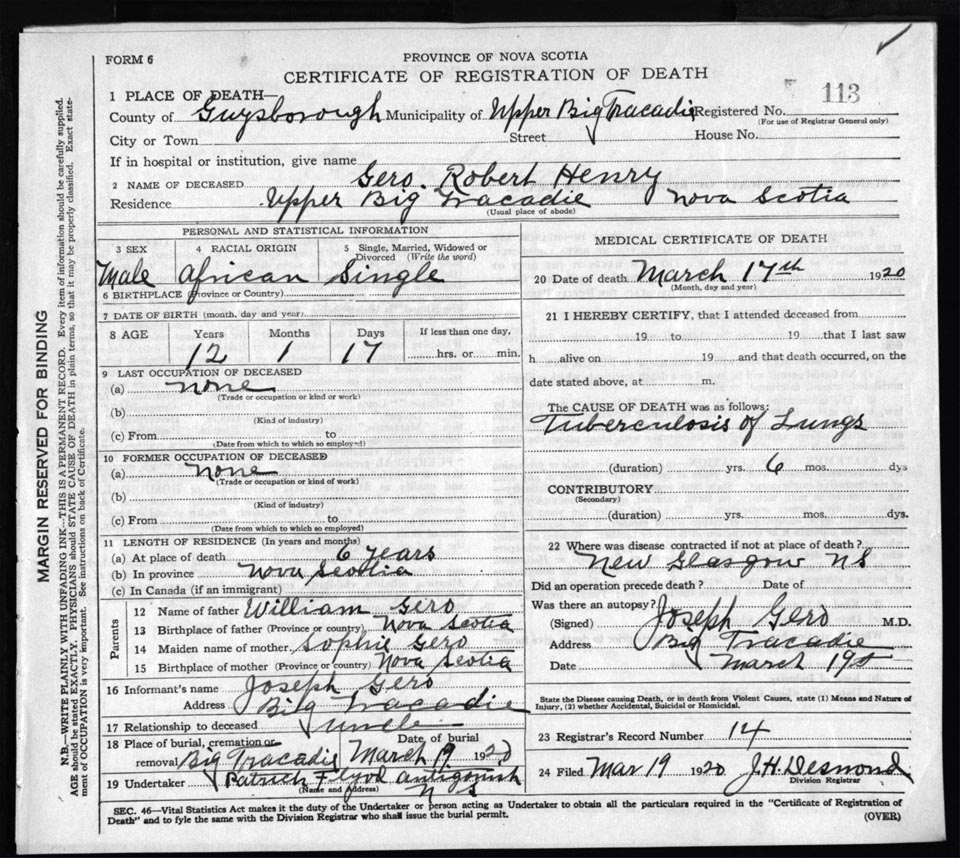 FORM 6
PROVINCE OF NOVA SCOTIA
CERTIFICATE OF REGISTRATION OF DEATH
113
1 PLACE OF DEATH—
County of Guysborough Municipality of Upper Big Tracadie Registered No.
(For use of Registrar General only)
City or Town Street House No.
If in hospital or institution, give name
2 NAME OF DECEASED Gero. Robert Henry
Residence Upper Big Tracadie Nova Scotia
(Usual place of abode)
PERSONAL AND STATISTICAL INFORMATION
3 SEX 4 RACIAL ORIGIN 5 Single, Married, Widowed or Divorced (Write the word)
Male African Single
6 BIRTHPLACE (Province or Country)
7 DATE OF BIRTH (month, day and year)
8 AGE Years Months Days If less than one day,
12 1 17 hrs. or min.
9 LAST OCCUPATION OF DECEASED
(a) none
(Trade or occupation or kind or work)
(b)
(Kind of industry)
(c) From to
(Date from which to which so employed)
10 FORMER OCCUPATION OF DECEASED
(a) none
(Trade or occupation or kind of work)
(b)
(Kind of industry)
(c) From to
(Date from which to which so employed)
11 LENGTH OF RESIDENCE (In years and months)
(a) At place of death 6 years
(b) In province Nova Scotia
(c) In Canada (if an immigrant)
Parents
12 Name of father William Gero
13 Birthplace of father (Province or country) Nova Scotia
14 Maiden name of mother Sophie Gero
15 Birthplace of mother (Province or country) Nova Scotia
16 Informant's name Joseph Gero
Address Big Tracadie
17 Relationship to deceased uncle
18 Place of burial, cremation or removal Big Tracadie Date of burial March 19 1920
19 Undertaker Patrick Floyd Antigonish
(Name and address) N S
MEDICAL CERTIFICATE OF DEATH
20 Date of death March 17th 1920
(Month, day and year)
21 I HEREBY CERTIFY, that I attended deceased from
19 to 19 that I last saw
h alive on 19 and that death occurred, on the
date stated above, at m.
The CAUSE OF DEATH was as follows:
Tuberculosis of Lungs
(duration) yrs. 6 mos. dys
CONTRIBUTORY
(Secondary)
(duration) yrs. mos. dys.
22 Where was disease contracted if not at place of death?
New Glasgow NS
Did an operation precede death? Date of
Was there an autopsy?
(Signed) Joseph Gero M.D.
Address Big Tracadie
Date March 19
State the Disease causing Death, or in death from Violent Causes, state (1) Means and Nature of
Injury, (2) whether Accidental, Suicidal or Homicidal.
23 Registrar's Record Number 14
24 Filed Mar 19 1920 J.H. Desmond
Division Registrar
SEC. 46—Vital Statistics Act makes it the duty of the Undertaker or person acting as Undertaker to obtain all the particulars required in the "Certificate of Registration of
Death" and to fyle the same with the Division Registrar who shall issue the burial permit.
(OVER)
MARGIN RESERVED FOR BINDING
N.B.—WRITE PLAINLY WITH UNFADING INK—THIS IS A PERMANENT RECORD. Every item of information should be carefully supplied.
AGE should be stated EXACTLY. PHYSICIANS should STATE CAUSE OF DEATH in plain terms, so that it may be properly classified. Exact state-
ment of OCCUPATION is very important. See instructions on back of Certificate.